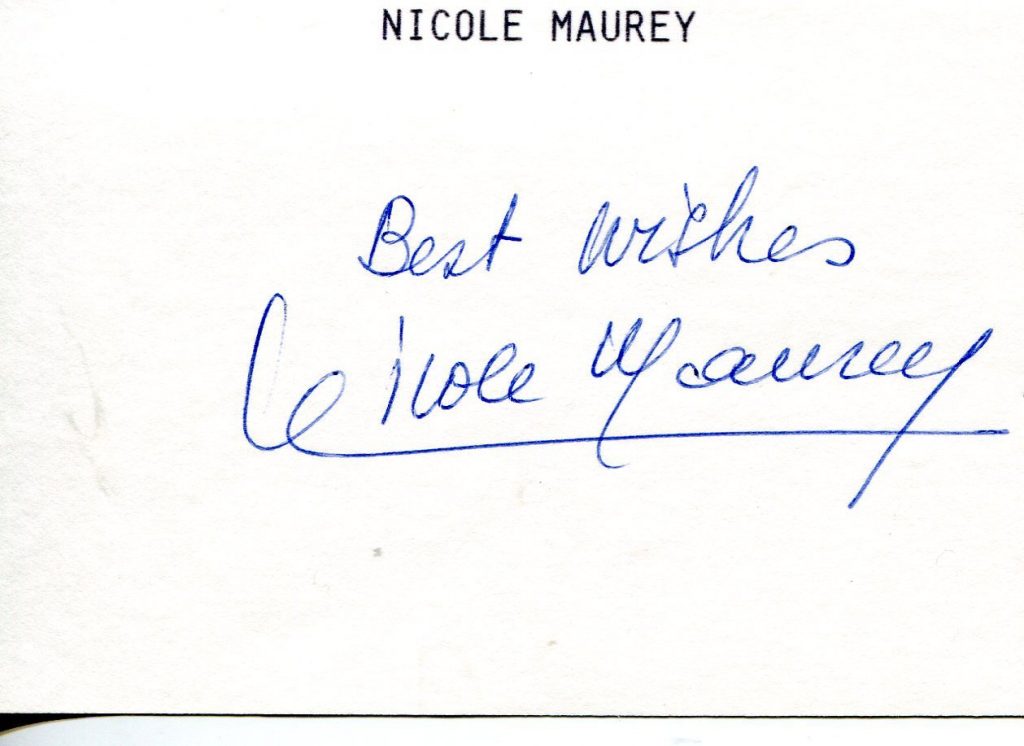 NICOLE MAUREY
Best wishes
Nicole Maurey